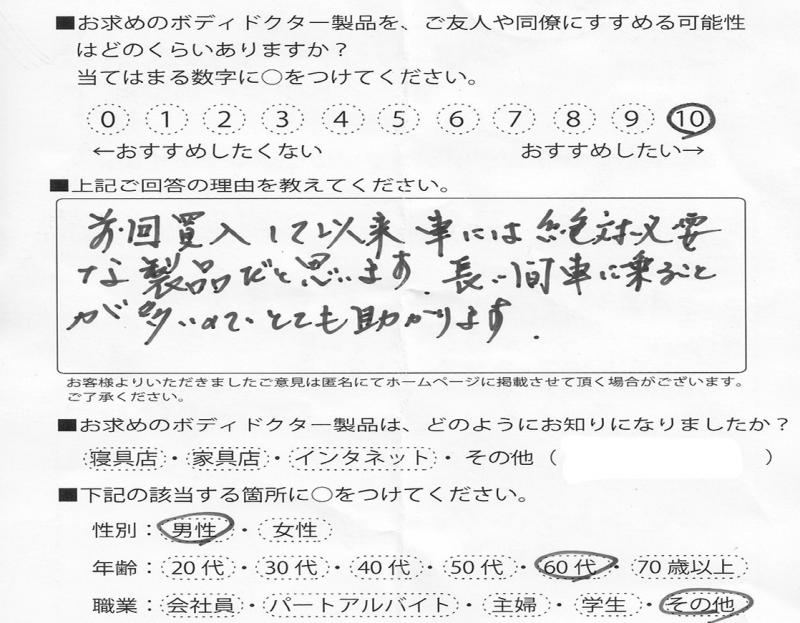 ■お求めのボディドクター製品を、ご友人や同僚にすすめる可能性
はどのくらいありますか？
当てはまる数字に○をつけてください。
0 1 2 3 4 5 6 7 8 9 10
←おすすめしたくない おすすめしたい→
■上記ご回答の理由を教えてください。
前回買入して以来車には絶対必要
な製品だと思います。長い間車に乗ること
が多いので、とても助かります.
お客様よりいただきましたご意見は匿名にてホームページに掲載させて頂く場合がございます。
ご了承ください。
■お求めのボディドクター製品は、どのようにお知りになりましたか？
寝具店・家具店・インタネット・その他（ ）
■下記の該当する箇所に○をつけてください。
性別：男性・女性
年齢：20代・30代・40代・50代・60代・70歳以上
職業：会社員・パートアルバイト・主婦・学生・その他